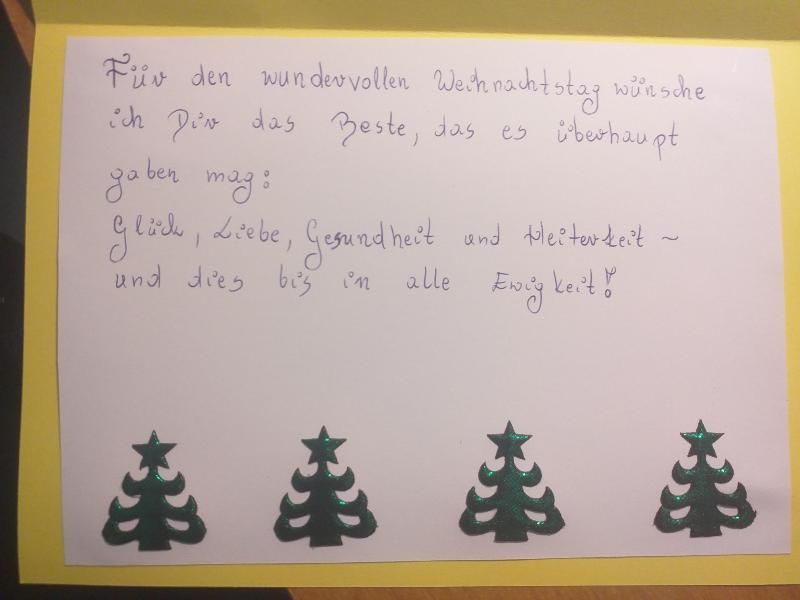 Für den wundervollen Weihnachtstag wünsche
ich Dir das Beste, das es überhaupt
gaben mag:
Glück, Liebe, Gesundheit und Heiterkeit ~
und dies bis in alle Ewigkeit!